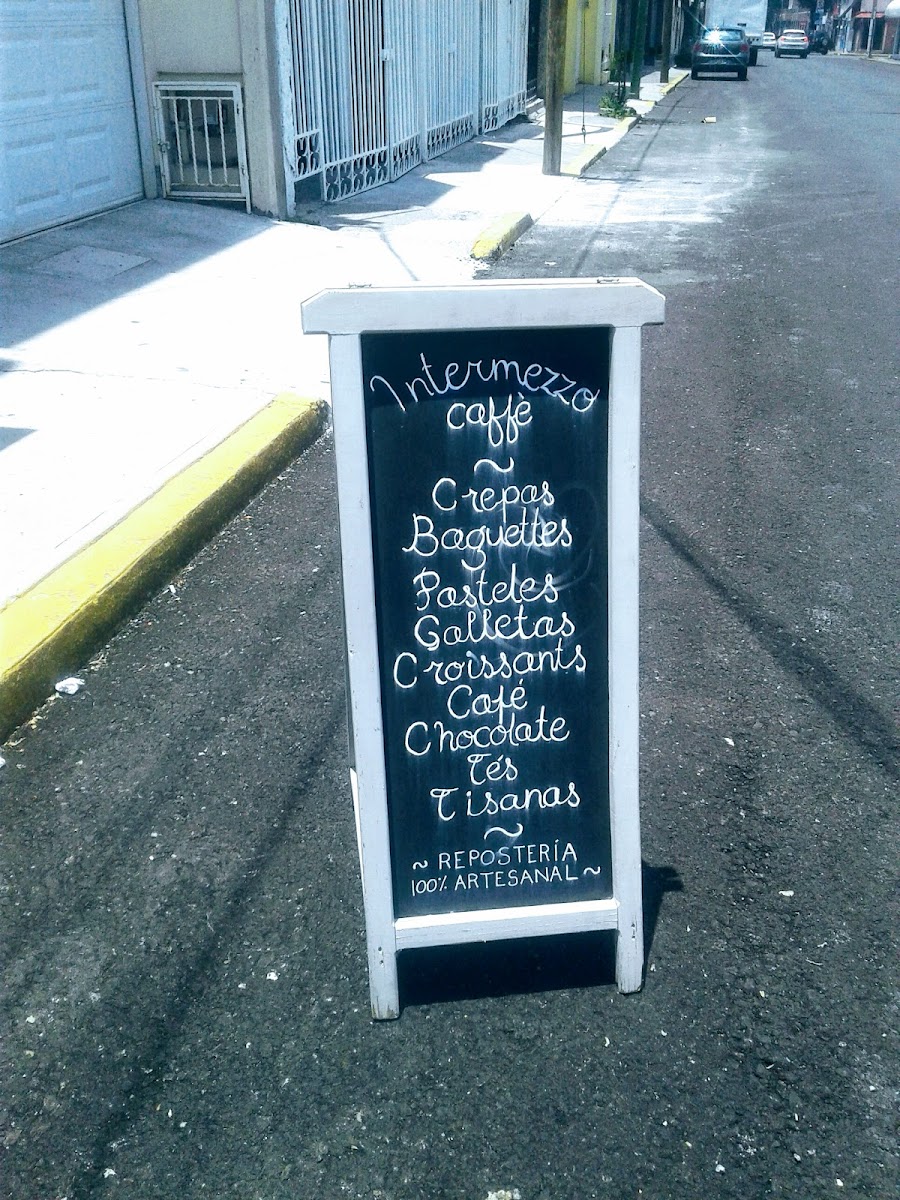 Intermezzo
caffè
~
Crepas
Baguettes
Pasteles
Galletas
Croissants
Café
Chocolate
Tés
Tisanas
~
~ REPOSTERÍA
100% ARTESANAL ~